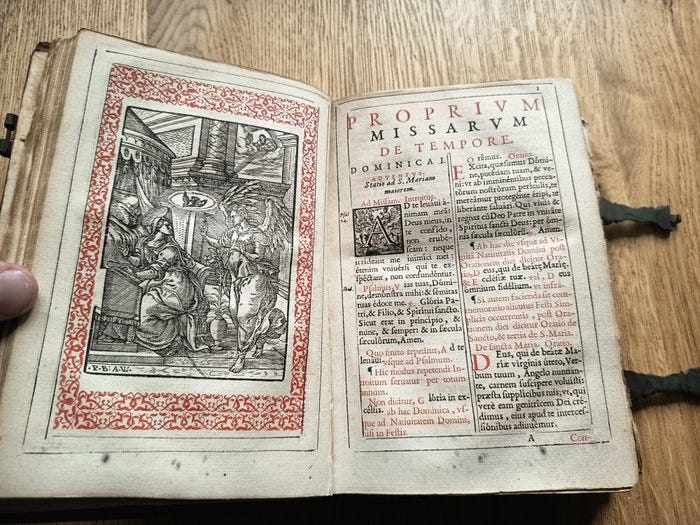 P. B. A. V.
1
PROPRIVM
MISSARVM
DE TEMPORE.
DOMINICA I.
ADVENTVS.
Statio ad S. Mariam
maiorem.
Ad Missam. Introitus.
Psal
24.
AD te leuaui á-
nimam meã:
Deus meus, in
te confido,
non erubé-
scam: neque
irrídeant me inimíci mei:
étenim vniuérsi qui te ex-
spéctant, non confundéntur.
Psalmus. Vias tuas, Dómi-
ne, demónstra mihi: & sémitas
tuas édoce me. Glória Pa-
tri, & Fílio, & Spirítui sancto.
Sicut erat in princípio, &
nunc, & semper: & in sæcula
sæculórum, Amen.
Quo finito repetitur, Ad te
leuáui, vsque ad Psalmum.
¶ Hic modus repetendi In-
troitum seruatur per totum
annum.
Non dicitur, Glória in ex-
célsis. ab hac Dominica, vs-
que ad Natiuitatem Domini,
nisi in Festis.
Orémus. Oratio.
EXcita, quæsumus Dómi-
ne, poténtiam tuam, & ve-
ni: vt ab imminéntibus pecca-
tórum nostrórum perículis, te
mereámur protegénte éripi, te
liberánte saluári. Qui viuis &
regnas cũ Deo Patre in vnitáte
Spíritus sancti Deus: per óm-
nia sæcula sæculórum. Amen.
¶ Ab hac die vsque ad Vi-
giliã Natiuitatis Domini post
Orationem diei dicitur Ora-
tio, Deus, qui de beátæ Maríæ,
& Ecclésiæ tuæ. vel, Deus
ómnium fidélium. vt infra.
¶ Si autem facienda sit com-
memoratio alicuius Festi Sim-
plicis occurrentis, post Ora-
tionem diei dicitur Oratio de
Sancto, & tertia de S. Maria.
De sancta Maria. Oratio.
DEus, qui de beátæ Ma-
ríæ vírginis útero, Ver-
bum tuum, Angelo nuntián-
te, carnem suscípere voluísti:
præsta supplícibus tuis; vt, qui
verè eam genitrícem Dei cré-
dimus, eius apud te interces-
siónibus adiuuémur.
A Con-